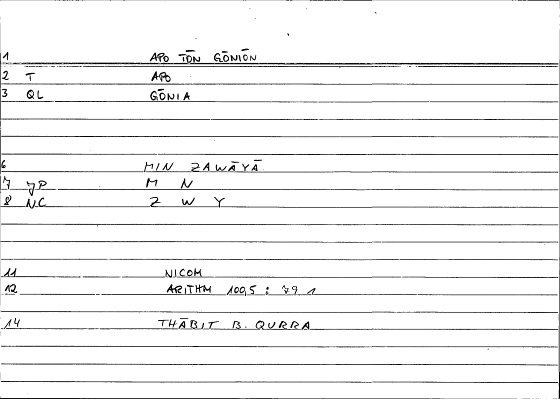 1 APO TŌN GŌNIŌN
2 T APO
3 QL GŌNIA
6 MIN ZAWĀYĀ
7 JP M N
8 NC Z W Y
11 NICOM
12 ARITHM 100,5 : 79 1
14 THĀBIT B. QURRA